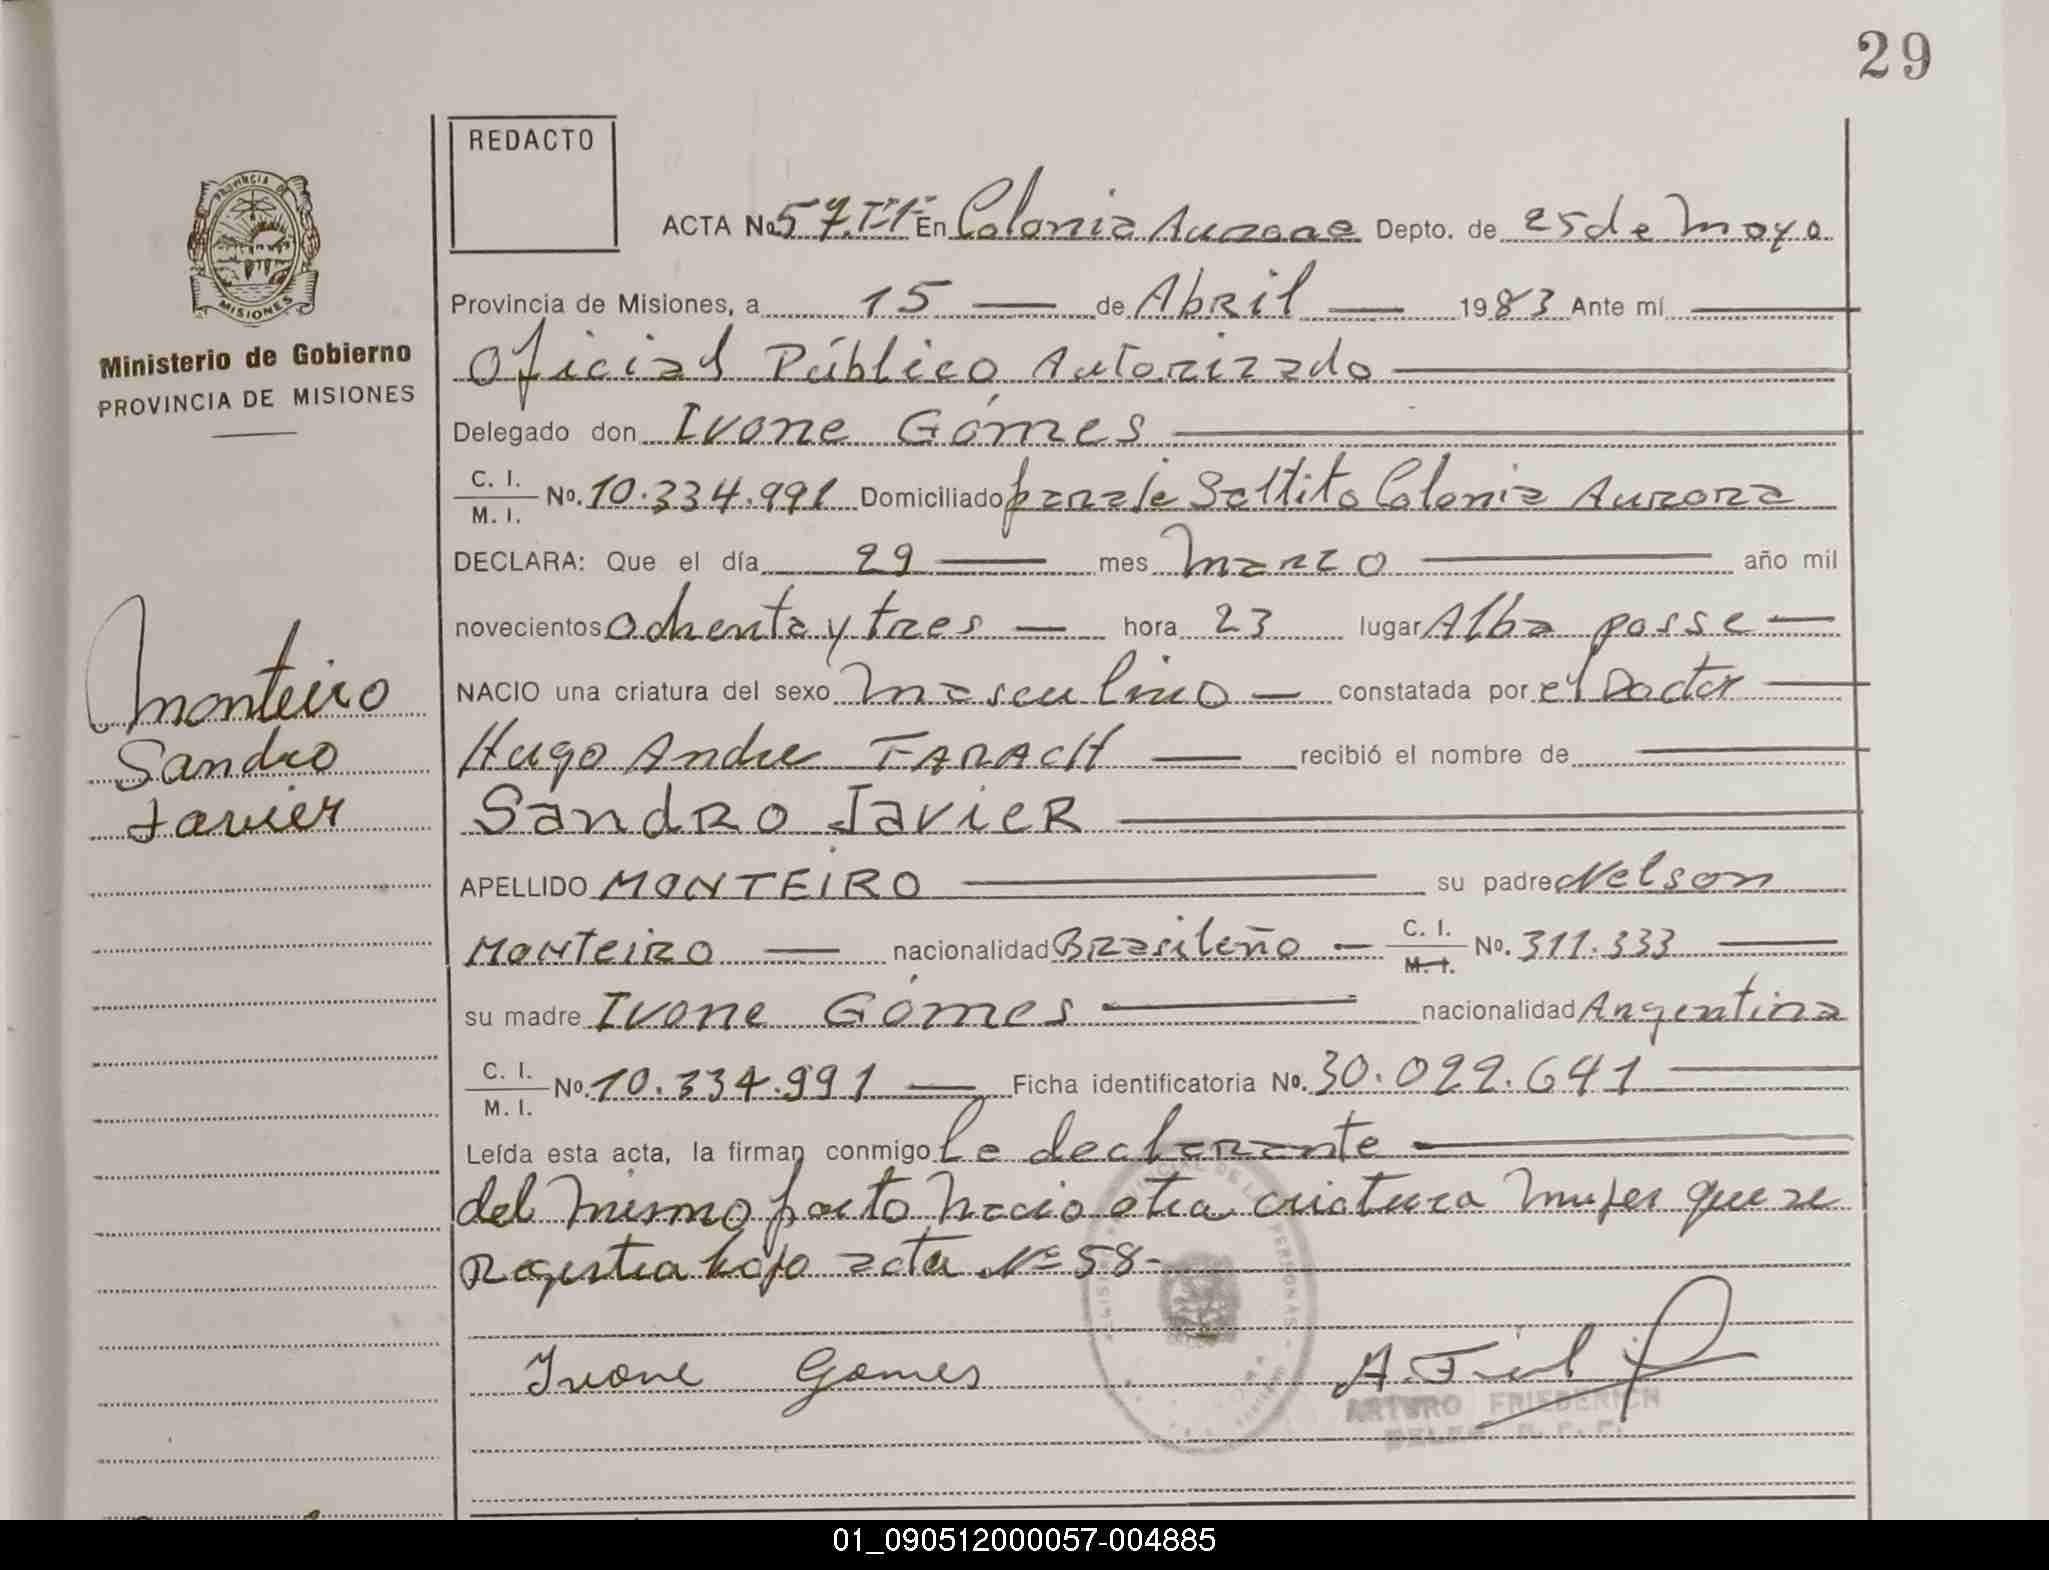 29
REDACTO
PROVINCIA DE
MISIONES
Ministerio de Gobierno
PROVINCIA DE MISIONES
ACTA No 57. En Colonia Aurora Depto. de 25 de Mayo
Provincia de Misiones, a 15 — de Abril — 1983 Ante mí —
Oficial Público Autorizado —
Delegado don Ivone Gómes —
C. I.
M. I. No. 10.334.991 Domiciliado paraje Saltito Colonia Aurora
DECLARA: Que el día 29 — mes Marzo — año mil
novecientos ochenta y tres — hora 23 lugar Alba posse —
NACIO una criatura del sexo Masculino — constatada por el Doctor —
Hugo Andre FARACH — recibió el nombre de —
Sandro Javier —
APELLIDO MONTEIRO — su padre Nelson
Monteiro — nacionalidad Brasileño — C. I. M. I. No. 311.333 —
su madre Ivone Gómes — nacionalidad Argentina
C. I.
M. I. No. 10.334.991 — Ficha identificatoria No. 30.022.641 —
Leída esta acta, la firman conmigo la declarante —
del mismo parto nacio otra criatura mujer que se
Registra bajo acta Nº 58-
Ivone Gomes
ARTURO FRIEDERICH
DELEG. R. P. P.
Monteiro
Sandro
Javier
01_090512000057-004885